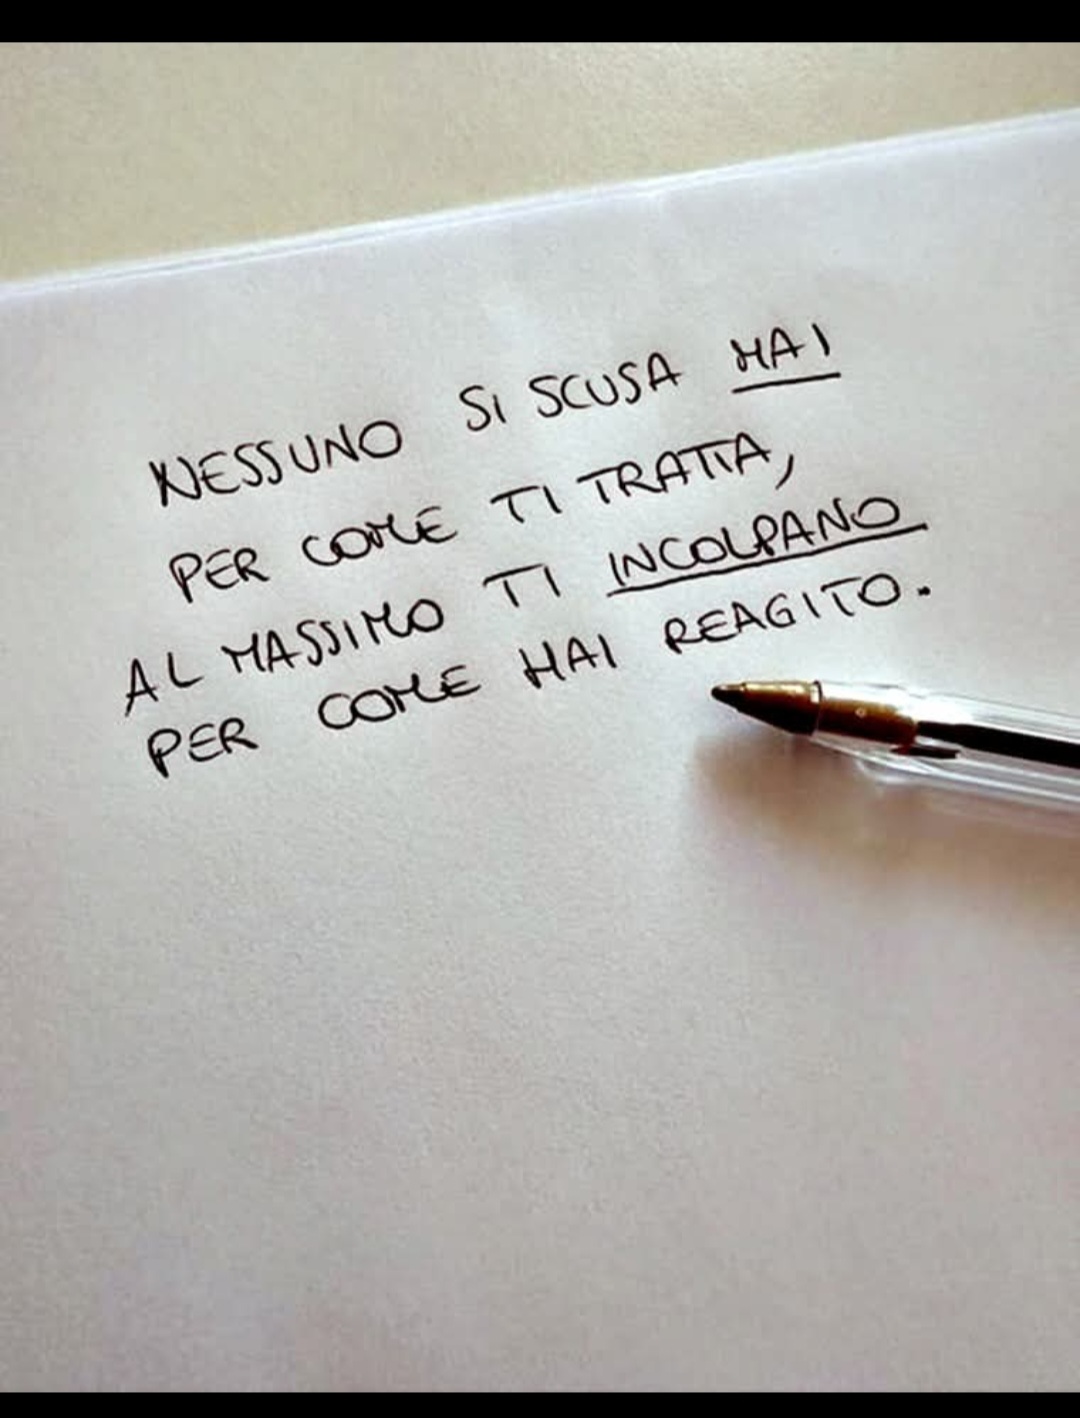 NESSUNO SI SCUSA MAI
PER COME TI TRATTA,
AL MASSIMO TI INCOLPANO
PER COME HAI REAGITO.